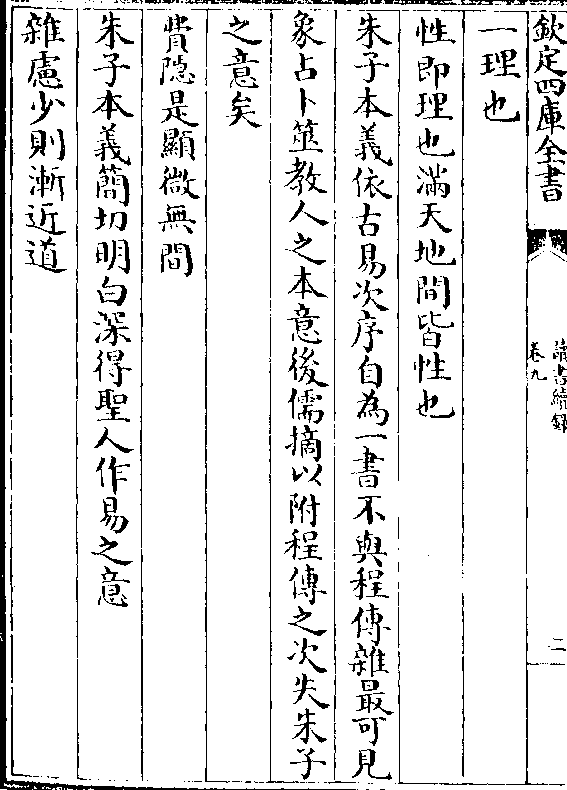 欽定四庫全書
讀書續録
卷九
二
一理也
性即理也滿天地間皆性也
朱子本義依古易次序自為一書不與程傳雜最可見
象占卜筮教人之本意後儒摘以附程傳之次失朱子
之意矣
費隠是顯微無間
朱子本義簡切明白深得聖人作易之意
雜慮少則漸近道